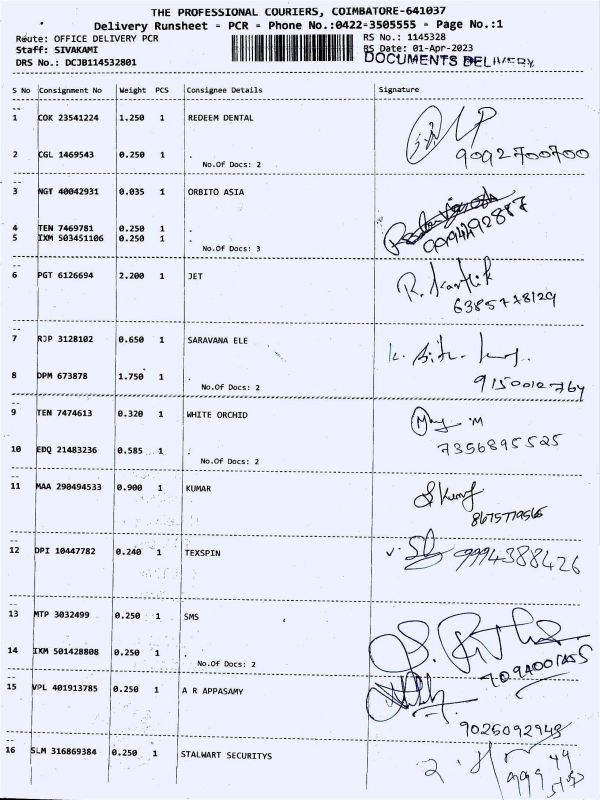 THE PROFESSIONAL COURIERS, COIMBATORE-641037
Delivery Runsheet - PCR - Phone No.:0422-3505555 - Page No.:1
Route: OFFICE DELIVERY PCR
RS No.: 1145328
Staff: SIVAKAMI
RS Date: 01-Apr-2023
DRS No.: DCJB114532801
DOCUMENTS DELIVERY
S No Consignment No Weight PCS Consignee Details Signature
1 COK 23541224 1.250 1 REDEEM DENTAL
2 CGL 1469543 0.250 1 .
No.Of Docs: 2
9092700700
3 NGT 40042931 0.035 1 ORBITO ASIA
4 TEN 7469781 0.250 1 .
5 IXM 503451106 0.250 1 .
No.Of Docs: 3
9994292887
6 PGT 6126694 2.200 1 JET
R. Karthik
6385778129
7 RJP 3128102 0.650 1 SARAVANA ELE
8 DPM 673878 1.750 1 .
No.Of Docs: 2
9150012764
9 TEN 7474613 0.320 1 WHITE ORCHID
10 EDQ 21483236 0.585 1 .
No.Of Docs: 2
7356895525
11 MAA 290494533 0.900 1 KUMAR
8675779566
12 DPI 10447782 0.240 1 TEXSPIN
9994388426
13 MTP 3032499 0.250 1 SMS
14 IXM 501428808 0.250 1 .
No.Of Docs: 2
15 VPL 401913785 0.250 1 A R APPASAMY
9025092943
16 SLM 316869384 0.250 1 STALWART SECURITYS